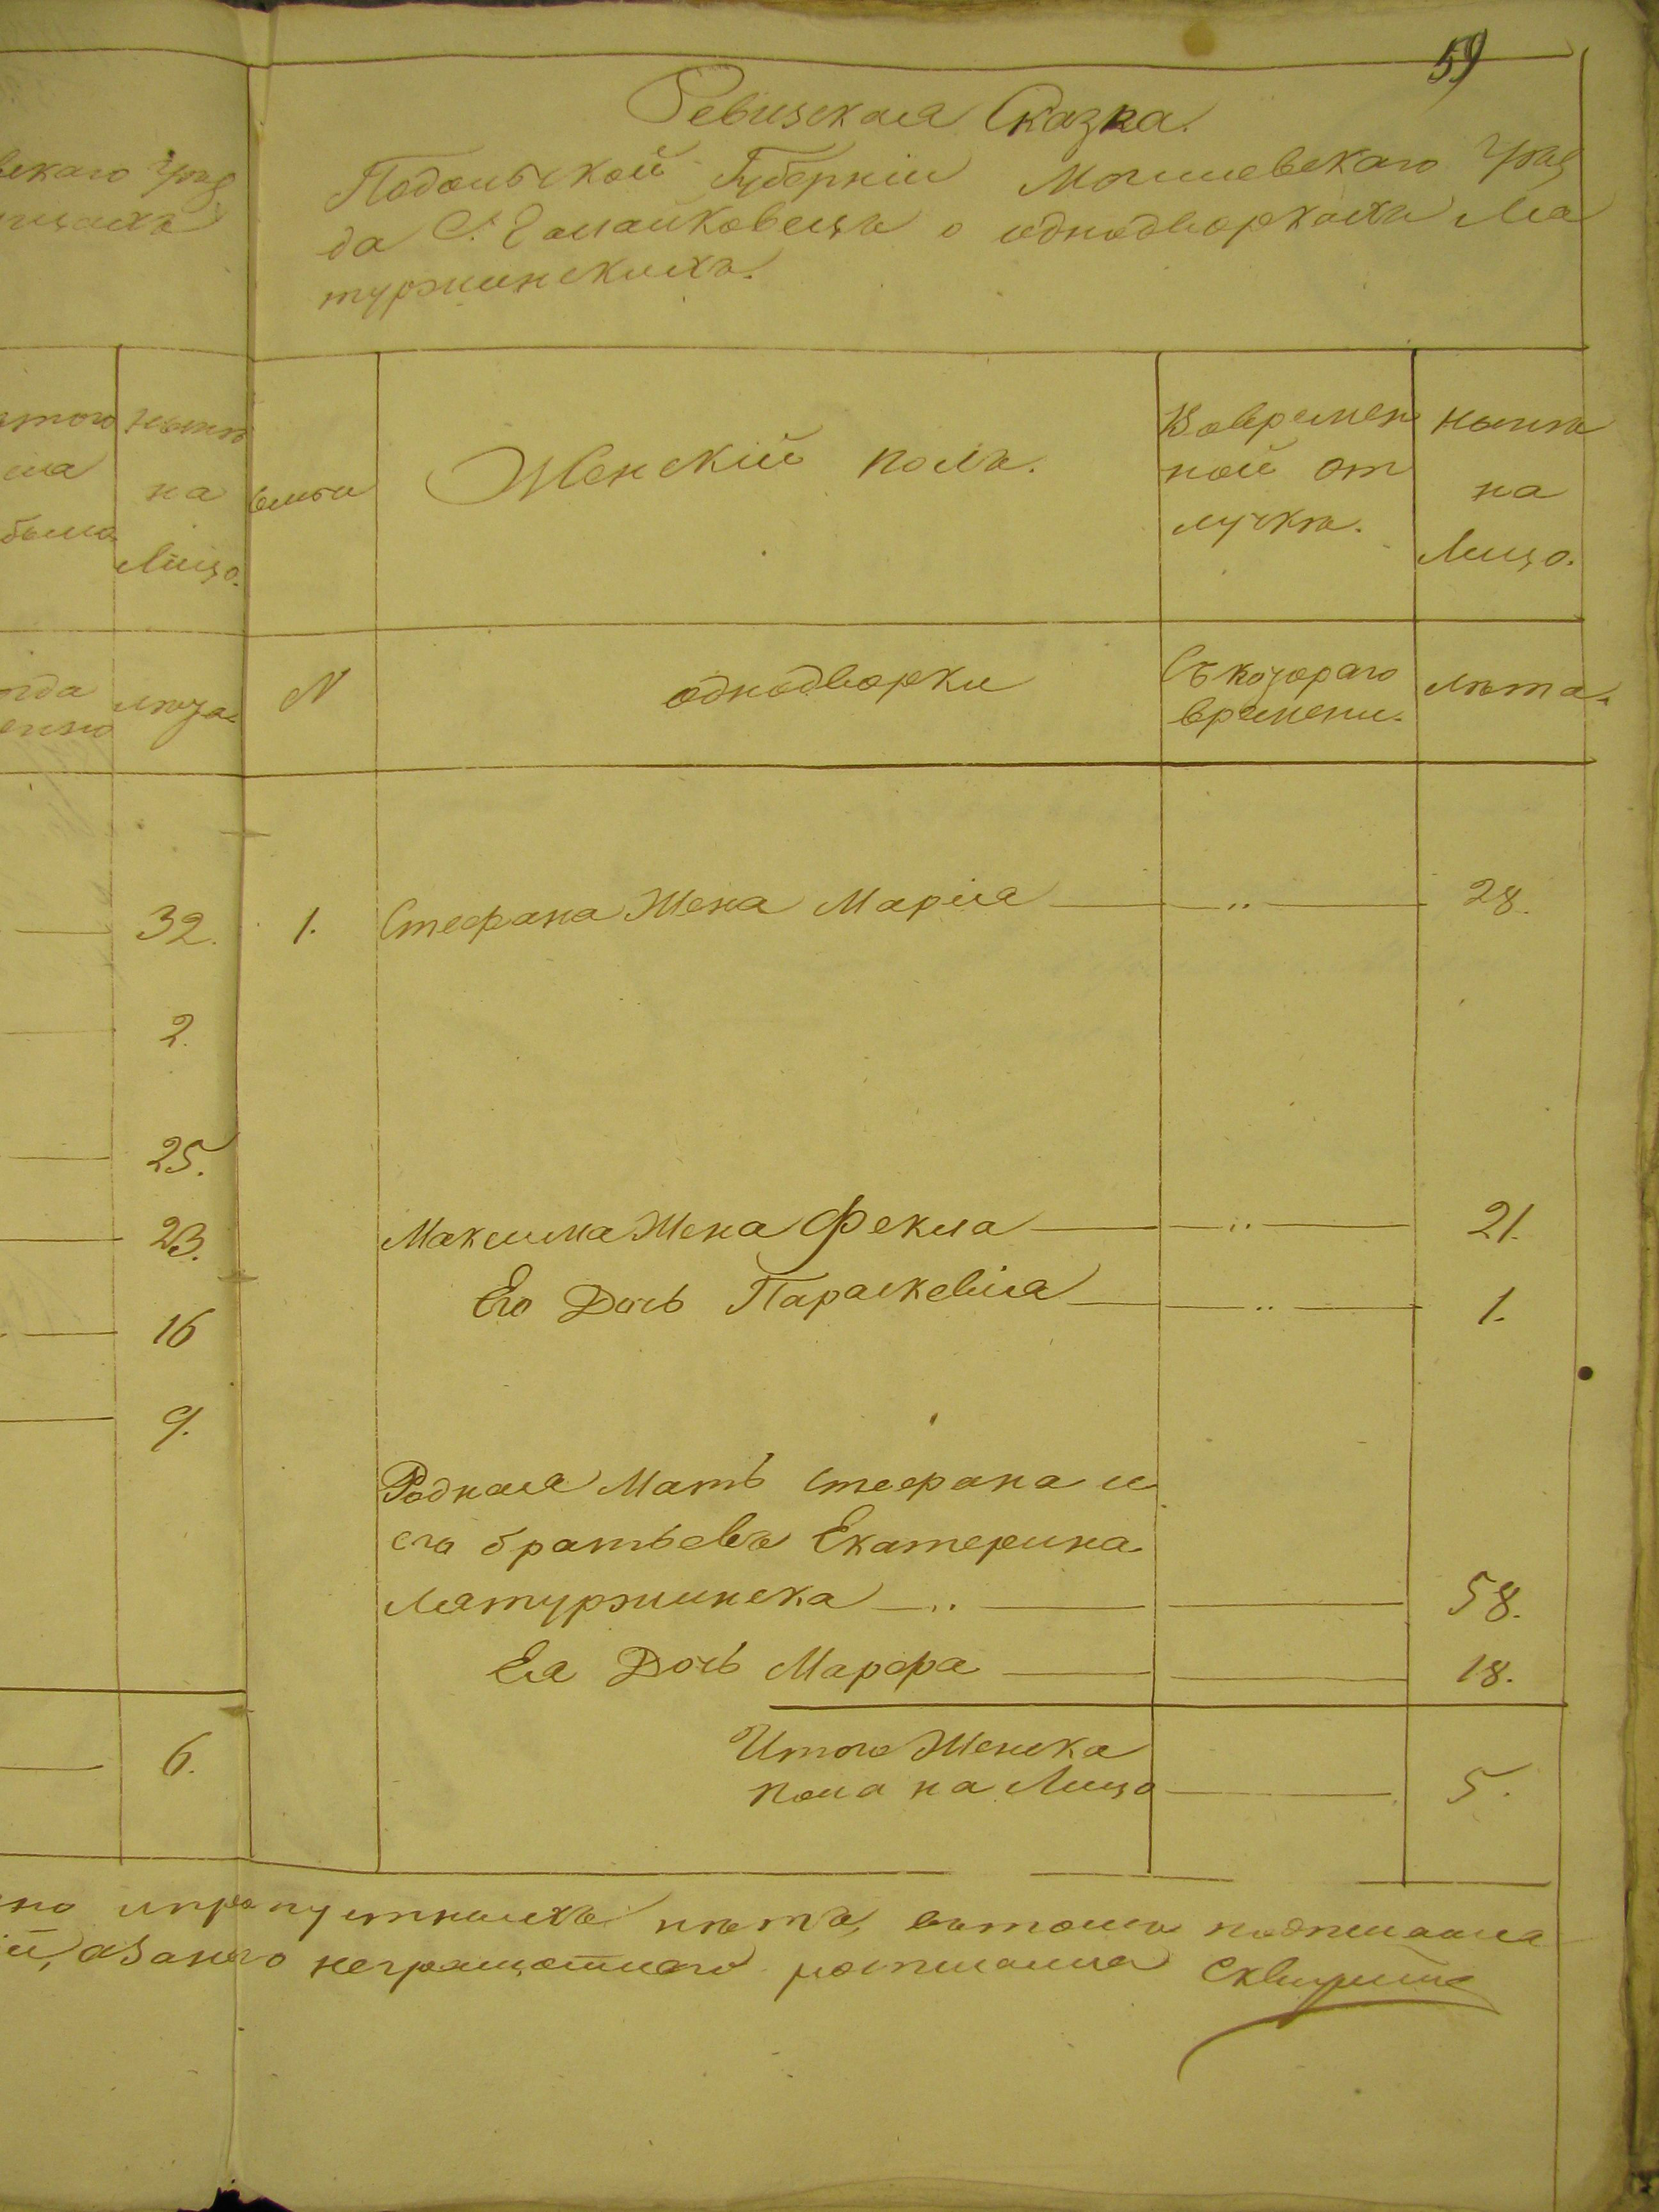 59
Ревизская Сказка.
Подольской Губерніи Могилевскаго Уѣз
да С. Галайковецъ о однодворкахъ Ма
туржинскихъ.
скаго Уѣз
Ныне на Лицо.
семьи
Женскій полъ.
Вовремен
ной от
лучкѣ.
Ныне
на
Лицо.
лета
N
однодворки
Съ котораго
времени.
лѣта.
32. 1. Стефана Жена Марія 28.
2.
25.
23. Максима Жена Фекла 21.
Его Дочь Параскевія 1.
16
9.
Родная Мать Стефана и
его братьевъ Екатерина
Матуржинска 58.
Ея Дочь Марфа 18.
Итого Женска
6. пола на Лицо 5.
пропустныхъ нѣтъ, вътомъ
неграмотнаго